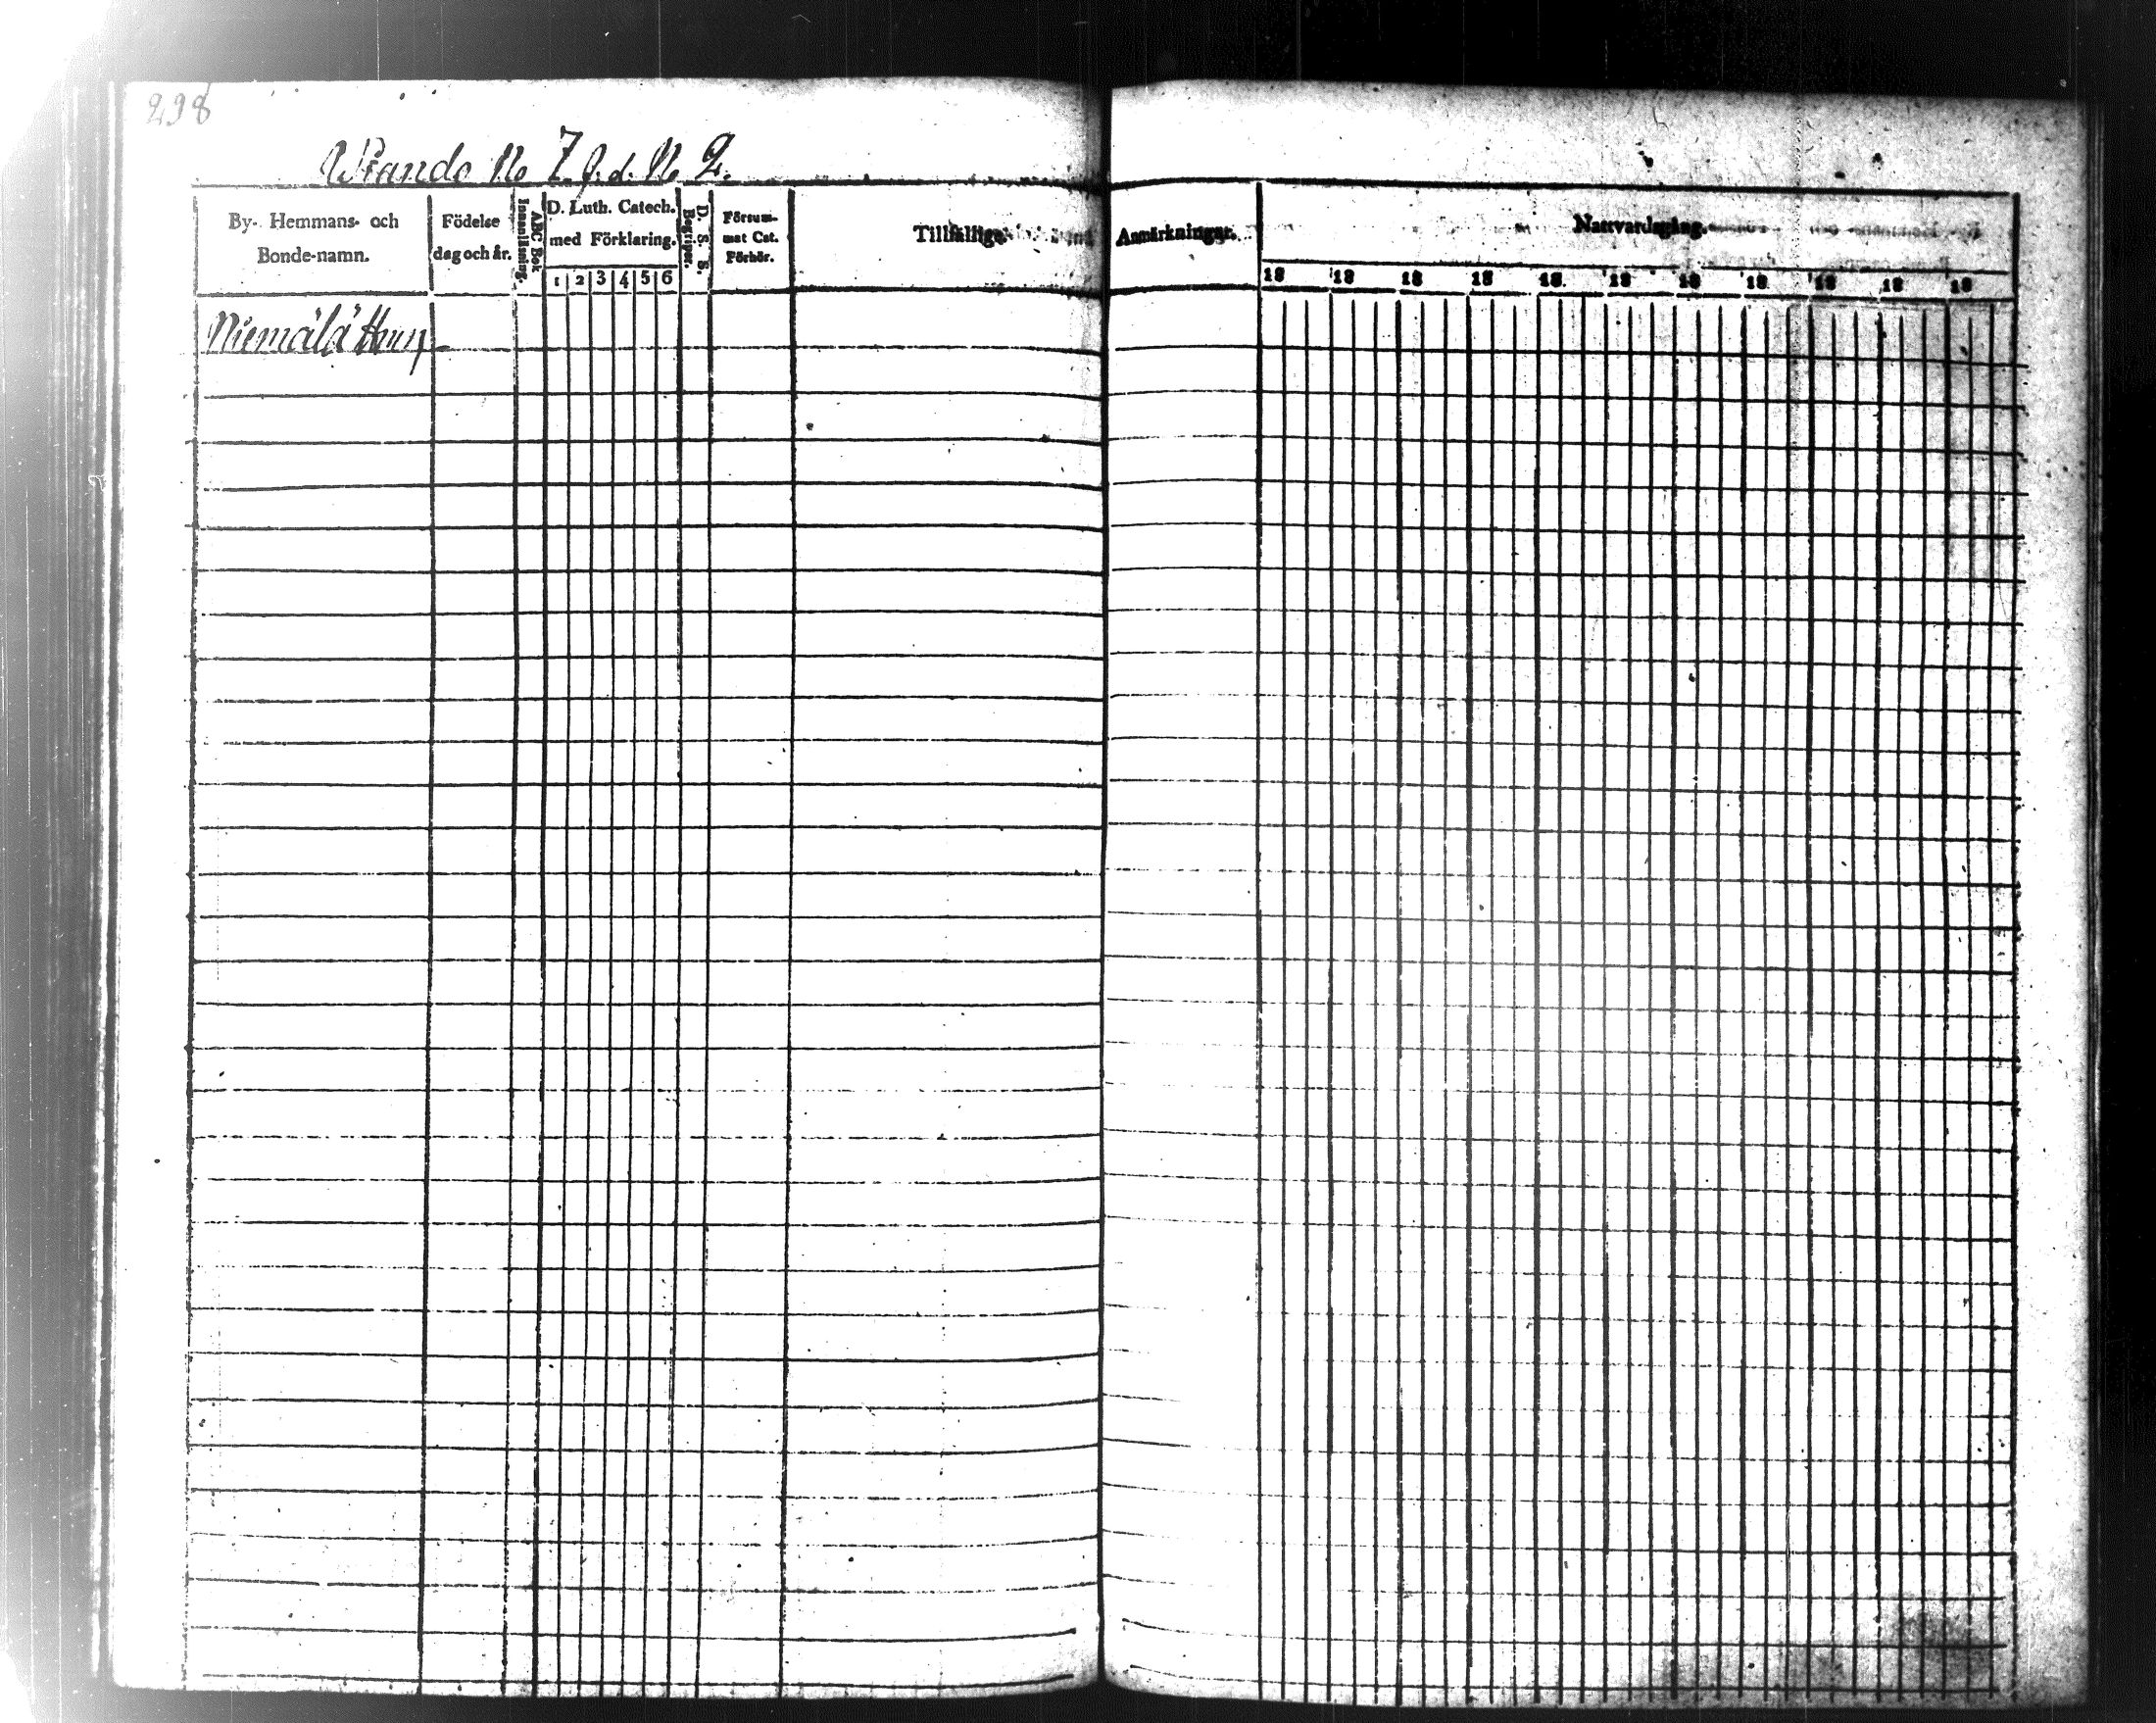 298
Wiando No 7 g.d. No 2.
By- Hemmans- och
Bonde-namn.
Födelse
dag och år.
ABC Bok
Innanläsning.
D. Luth. Catech.
med Förklaring.
1 2 3 4 5 6
D. S. S.
Begriper.
Försum-
mat Cat.
Förhör.
Tillfällige
Anmärkningar.
Nattvardsgång.
18 18 18 18 18 18 18 18 18 18 18
Niemälä Hem